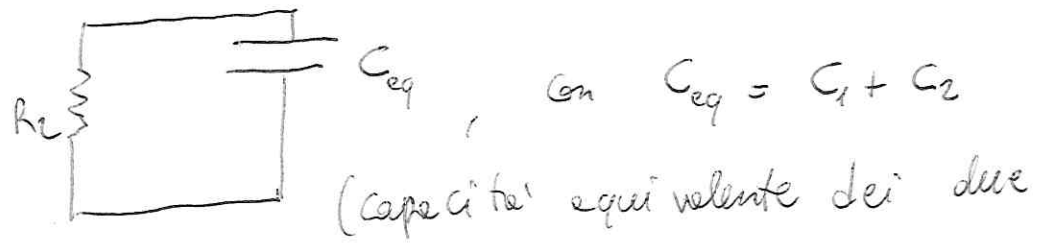 R₂ C_eq , con C_eq = C₁ + C₂
(capacità equivalente dei due